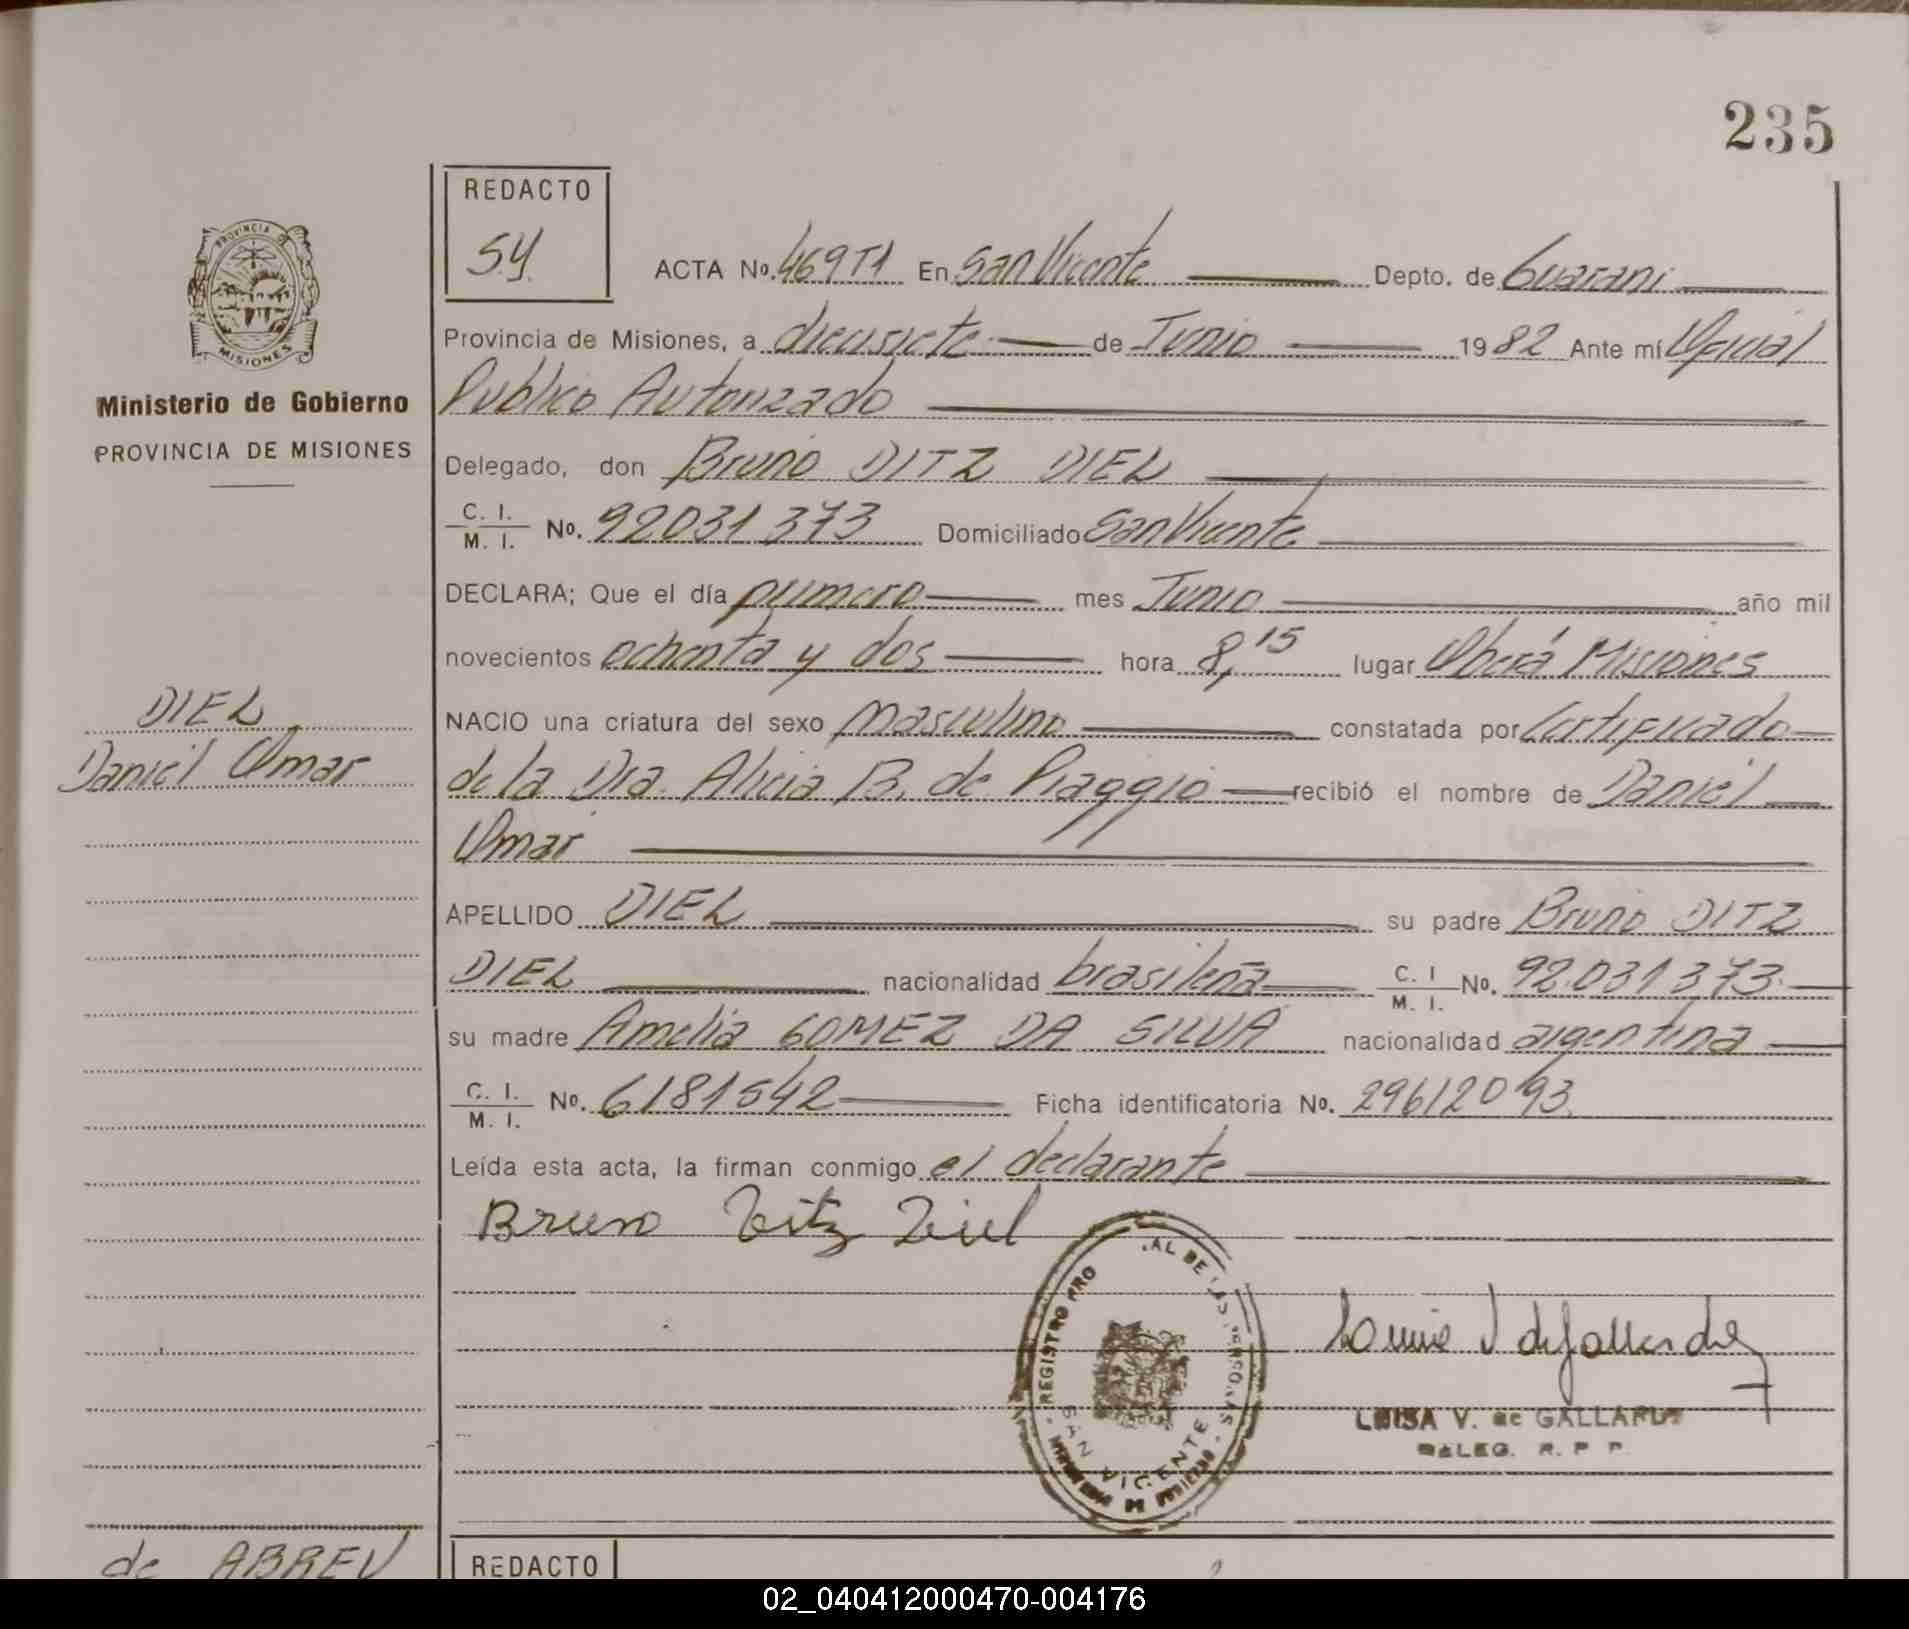 235
REDACTO
S.Y.
ACTA No. 469 T1 En San Vicente Depto. de Guarani
Provincia de Misiones, a diecisiete de Junio 1982 Ante mí Oficial
Publico Autorizado
PROVINCIA DE
MISIONES
Ministerio de Gobierno
PROVINCIA DE MISIONES
Delegado, don Bruno DITZ DIEL
C. I.
M. I. No. 92031373 Domiciliado San Vicente
DECLARA; Que el día primero mes Junio año mil
novecientos ochenta y dos hora 8,15 lugar Oberá Misiones
DIEL
Daniel Omar
NACIO una criatura del sexo masculino constatada por Certificado
de la Dra. Alicia B. de Piaggio recibió el nombre de Daniel
Omar
APELLIDO DIEL su padre Bruno DITZ
DIEL nacionalidad brasileña C. I
M. I. No. 92.031373.
su madre Amelia GOMEZ DA SILVA nacionalidad argentina
C. I.
M. I. No. 6181542 Ficha identificatoria No. 29612093.
Leída esta acta, la firman conmigo el declarante
Bruno Ditz Diel
REGISTRO PRO AL DE LAS PERSONAS
SAN VICENTE
LUISA V. de GALLARDO
DELEG. R. P. P.
de ABREU
REDACTO
02_040412000470-004176